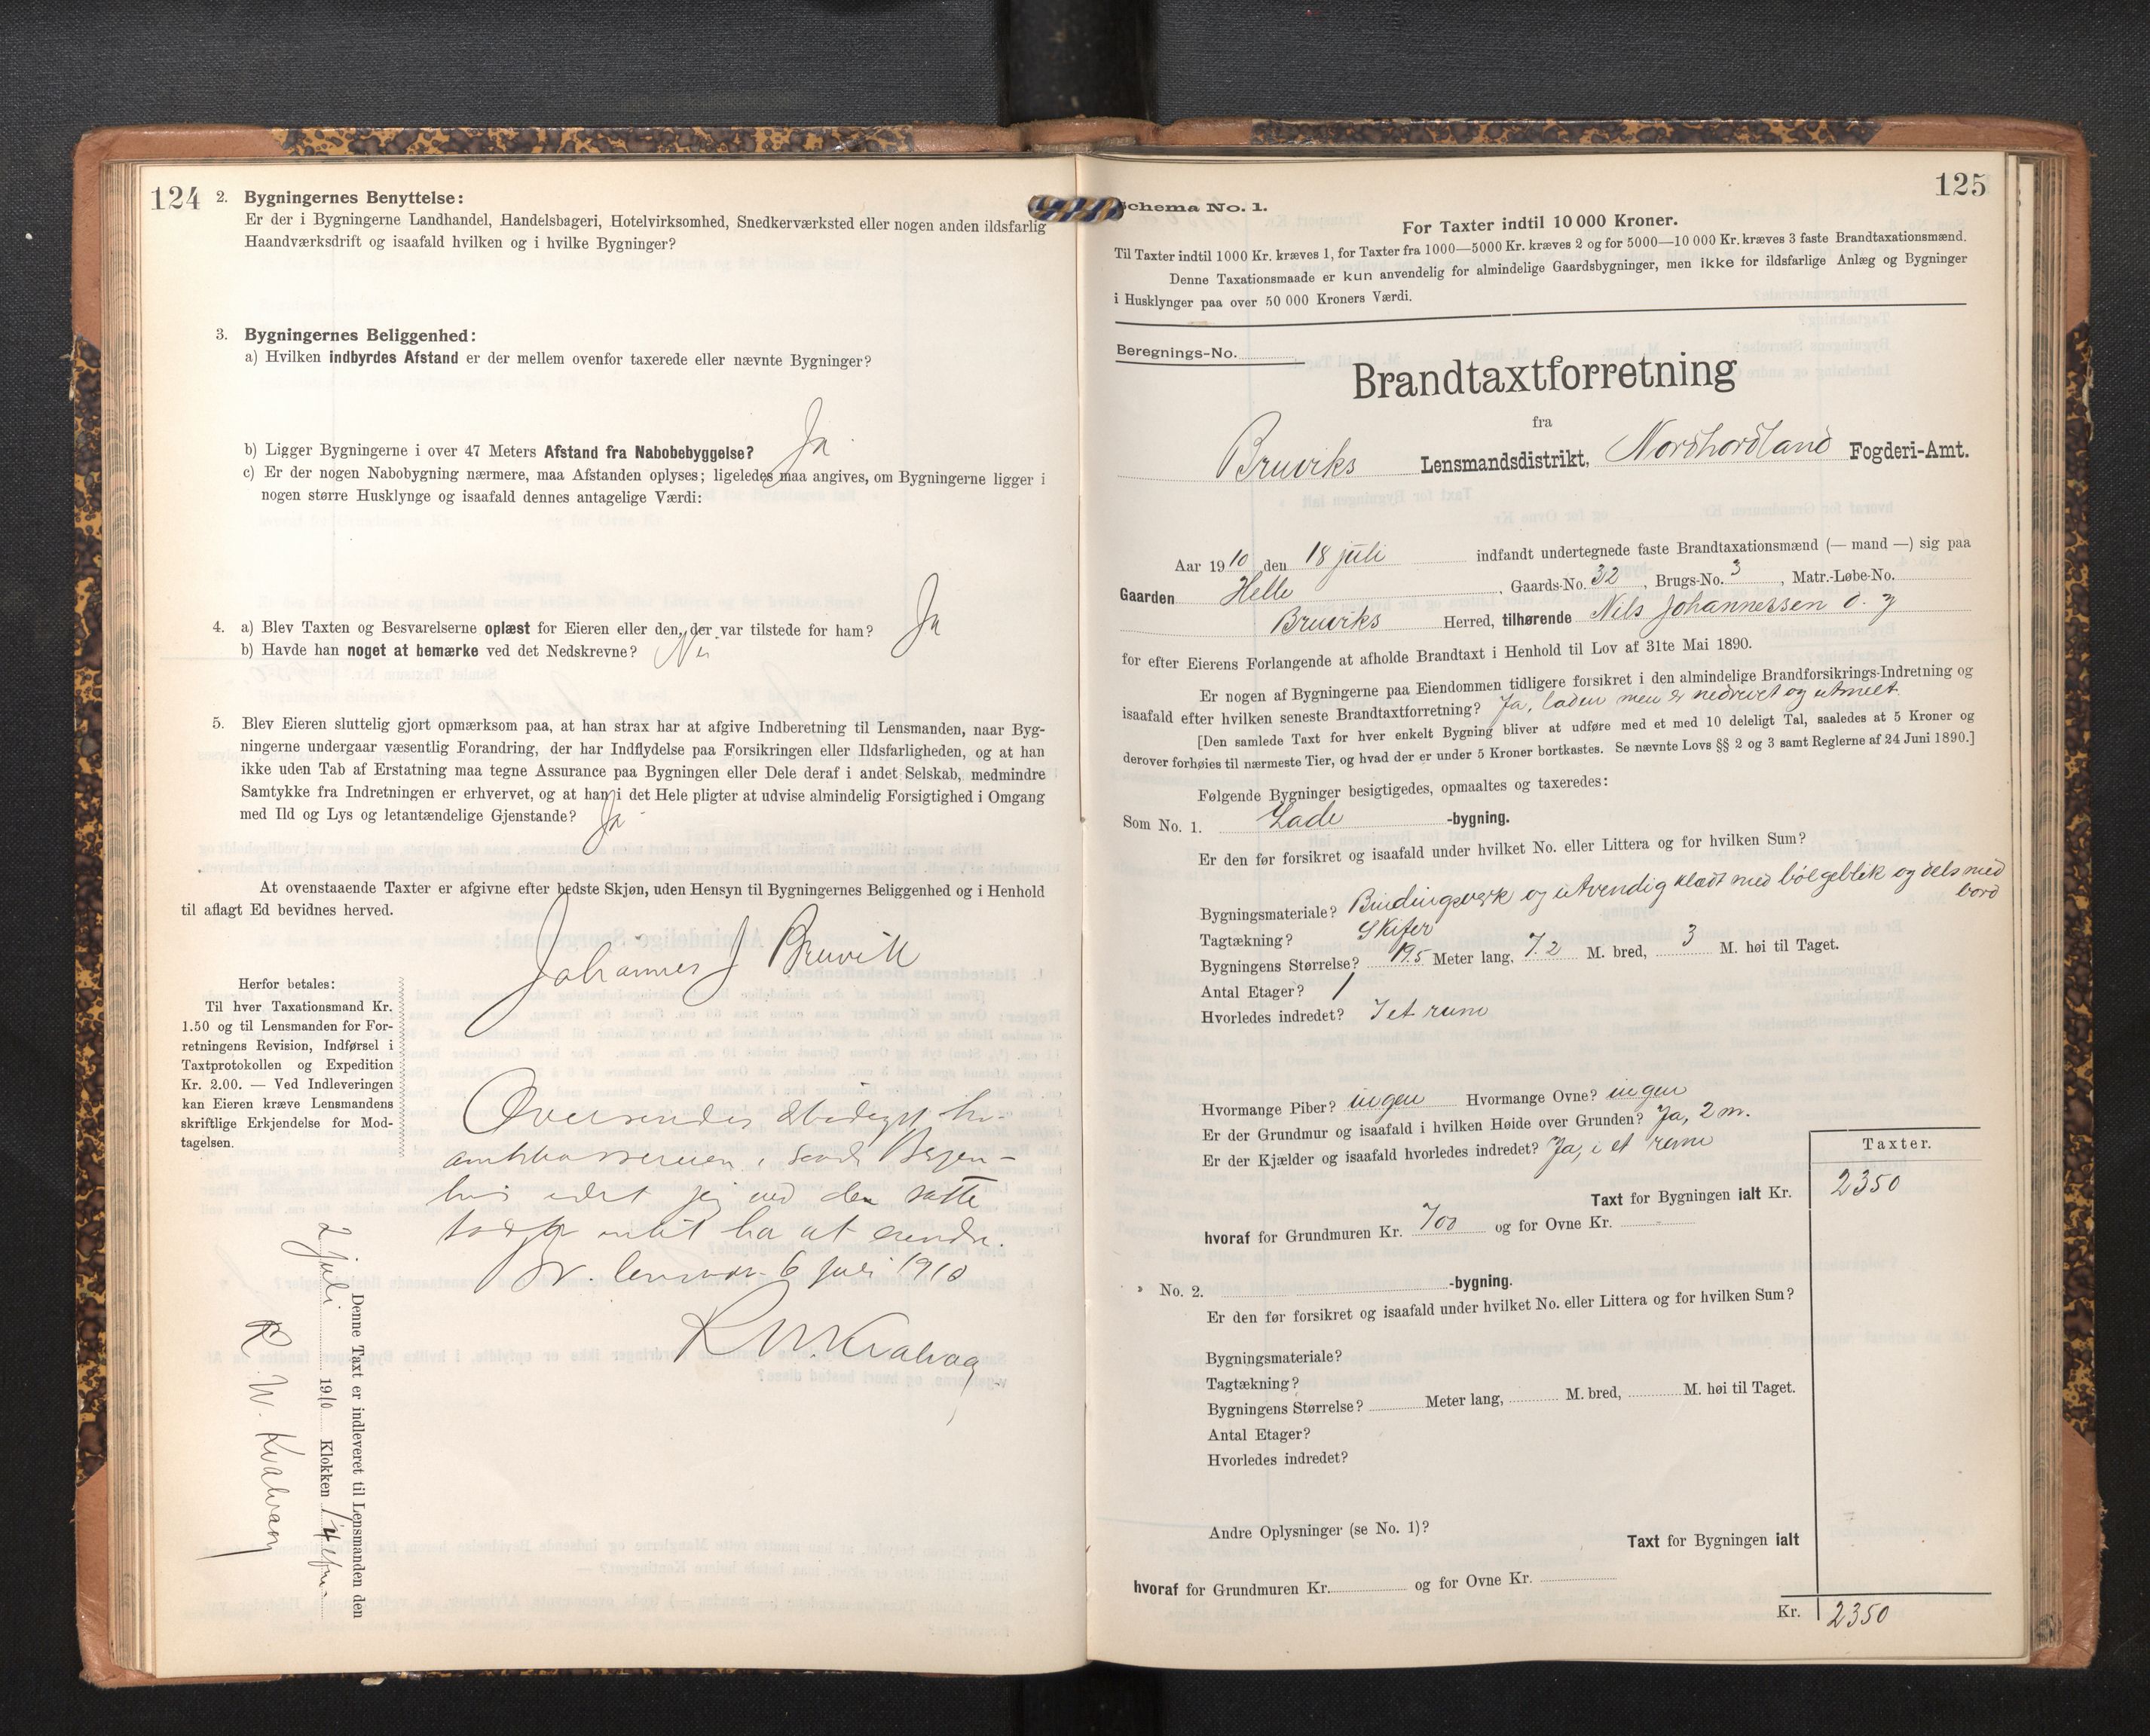 124
2. Bygningernes Benyttelse:
Er der i Bygningerne Landhandel, Handelsbageri, Hotelvirksomhed, Snedkerværksted eller nogen anden ildsfarlig
Haandværksdrift og isaafald hvilken og i hvilke Bygninger?
3. Bygningernes Beliggenhed:
a) Hvilken indbyrdes Afstand er der mellem ovenfor taxerede eller nævnte Bygninger?
b) Ligger Bygningerne i over 47 Meters Afstand fra Nabobebyggelse? Ja
c) Er der nogen Nabobygning nærmere, maa Afstanden oplyses; ligeledes maa angives, om Bygningerne ligger i
nogen større Husklynge og isaafald dennes antagelige Værdi:
4. a) Blev Taxten og Besvarelserne oplæst for Eieren eller den, der var tilstede for ham? Ja
b) Havde han noget at bemærke ved det Nedskrevne? Nei
5. Blev Eieren sluttelig gjort opmærksom paa, at han strax har at afgive Indberetning til Lensmanden, naar Byg-
ningerne undergaar væsentlig Forandring, der har Indflydelse paa Forsikringen eller Ildsfarligheden, og at han
ikke uden Tab af Erstatning maa tegne Assurance paa Bygningen eller Dele deraf i andet Selskab, medmindre
Samtykke fra Indretningen er erhvervet, og at han i det Hele pligter at udvise almindelig Forsigtighed i Omgang
med Ild og Lys og letantændelige Gjenstande? Ja
At ovenstaaende Taxter er afgivne efter bedste Skjøn, uden Hensyn til Bygningernes Beliggenhed og i Henhold
til aflagt Ed bevidnes herved.
Johannes J Bruvik
Herfor betales:
Til hver Taxationsmand Kr.
1.50 og til Lensmanden for For-
retningens Revision, Indførsel i
Taxtprotokollen og Expedition
Kr. 2.00. — Ved Indleveringen
kan Eieren kræve Lensmandens
skriftlige Erkjendelse for Mod-
tagelsen.
Oversendes
i Søndre Bergen-
hus idet jeg ved den satte
intet ha at erindre.
6 juli 1910
R W. Kvalvaag
Denne Taxt er indleveret til Lensmanden den
2 juli 1910 Klokken 4
R. W. Kvalvaag
125
Schema No. 1.
For Taxter indtil 10 000 Kroner.
Til Taxter indtil 1000 Kr. kræves 1, for Taxter fra 1000—5000 Kr. kræves 2 og for 5000—10 000 Kr. kræves 3 faste Brandtaxationsmænd.
Denne Taxationsmaade er kun anvendelig for almindelige Gaardsbygninger, men ikke for ildsfarlige Anlæg og Bygninger
i Husklynger paa over 50 000 Kroners Værdi.
Beregnings-No.
Brandtaxtforretning
fra
Bruviks Lensmandsdistrikt, Nordhordland Fogderi-Amt.
Aar 1910 den 18 juli indfandt undertegnede faste Brandtaxationsmænd (— mand —) sig paa
Gaarden Helle, Gaards-No. 32, Brugs-No. 3, Matr.-Løbe-No.
Bruviks Herred, tilhørende Nils Johannessen
for efter Eierens Forlangende at afholde Brandtaxt i Henhold til Lov af 31te Mai 1890.
Er nogen af Bygningerne paa Eiendommen tidligere forsikret i den almindelige Brandforsikrings-Indretning og
isaafald efter hvilken seneste Brandtaxtforretning? Ja, laden men er nedrevet og utmelt.
[Den samlede Taxt for hver enkelt Bygning bliver at udføre med et med 10 deleligt Tal, saaledes at 5 Kroner og
derover forhøies til nærmeste Tier, og hvad der er under 5 Kroner bortkastes. Se nævnte Lovs §§ 2 og 3 samt Reglerne af 24 Juni 1890.]
Følgende Bygninger besigtigedes, opmaaltes og taxeredes:
Som No. 1. Lade -bygning.
Er den før forsikret og isaafald under hvilket No. eller Littera og for hvilken Sum?
Bygningsmateriale? Bindingsverk og utvendig klædt med bølgeblik og dels med
bord
Tagtækning? Skifer
Bygningens Størrelse? 19.5 Meter lang, 7.2 M. bred, 3 M. høi til Taget.
Antal Etager? 1
Hvorledes indredet? I et rum
Hvormange Piber? ingen Hvormange Ovne? ingen
Er der Grundmur og isaafald i hvilken Høide over Grunden? Ja, 2 m.
Er der Kjælder og isaafald hvorledes indredet? Ja, i et rum
Taxter.
Taxt for Bygningen ialt Kr. 2350
hvoraf for Grundmuren Kr. 700 og for Ovne Kr. -
» No. 2. -bygning.
Er den før forsikret og isaafald under hvilket No. eller Littera og for hvilken Sum?
Bygningsmateriale?
Tagtækning?
Bygningens Størrelse? Meter lang, M. bred, M. høi til Taget.
Antal Etager?
Hvorledes indredet?
Andre Oplysninger (se No. 1)?
Taxt for Bygningen ialt
hvoraf for Grundmuren Kr. og for Ovne Kr.
Kr. 2350